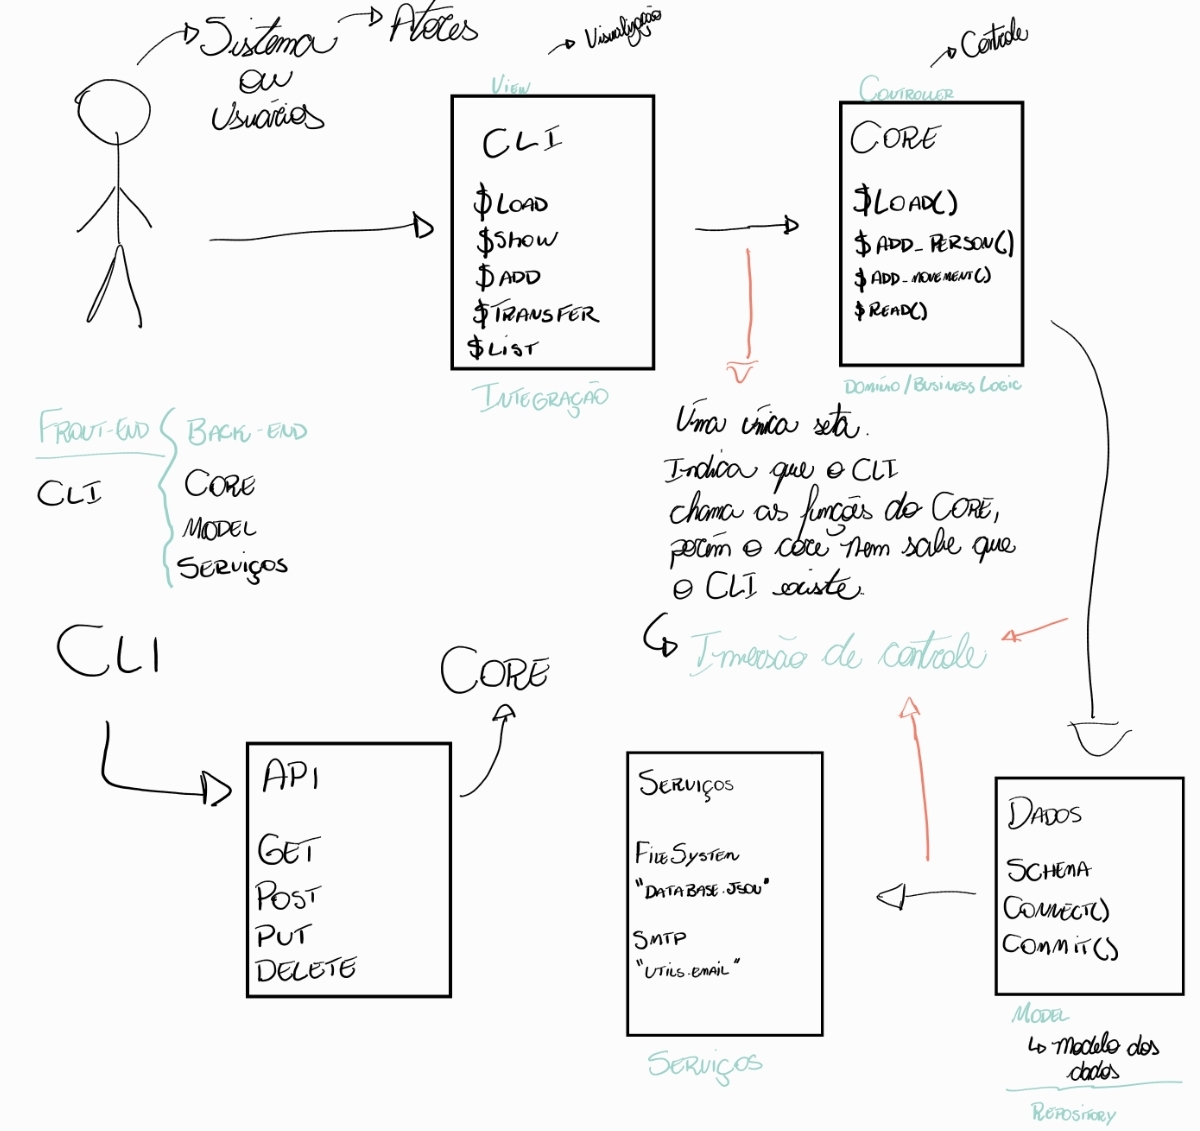 Sistema
ou
Usuários
Atores
Visualização
View
CLI
$LOAD
$SHOW
$ADD
$TRANSFER
$LIST
INTEGRAÇÃO
Controle
CONTROLLER
CORE
$LOAD()
$ADD_PERSON()
$ADD_MOVEMENT()
$READ()
DOMÍNIO/BUSINESS LOGIC
FRONT-END
CLI
BACK-END
CORE
MODEL
SERVIÇOS
Uma única seta.
Indica que o CLI
chama as funções do CORE,
porém o core nem sabe que
o CLI existe.
Imersão de controle
CLI
CORE
API
GET
POST
PUT
DELETE
SERVIÇOS
FILESYSTEM
"DATABASE.JSON"
SMTP
"UTILS.EMAIL"
SERVIÇOS
DADOS
SCHEMA
CONNECT()
COMMIT()
MODEL
Modelo dos
dados
REPOSITORY